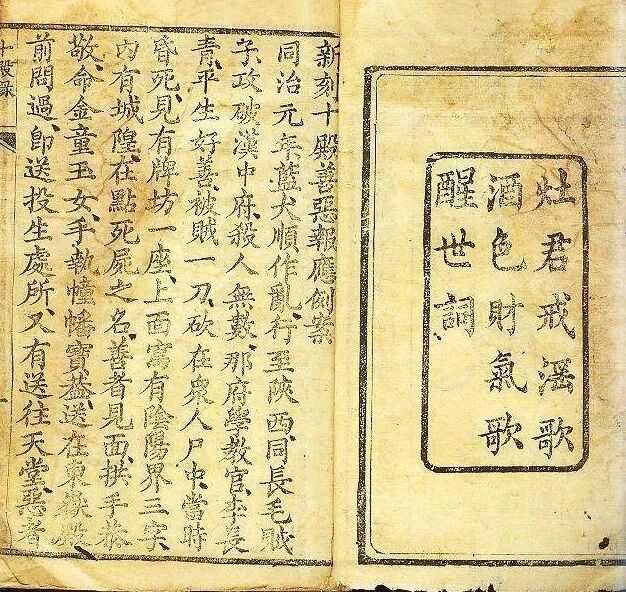 灶君戒滛歌
酒色財氣歌
醒世詞
新刻十殿善惡報應例案
同治元年藍犬順作亂、行至陜西、同長毛賊
子、攻破漢中府、殺人無數、那府學教官、李長
青、平生好善、被賊一刀、砍在衆人尸中、當時
昏死、見有牌坊一座、上面寫有陰陽界三字、
內有城隍、在點死屍之名、善者見面、拱手恭
敬、命金童玉女、手執幢幡寶蓋、送在東嶽殿
前問過、卽送投生處所、又有送往天堂、惡者
十殿錄